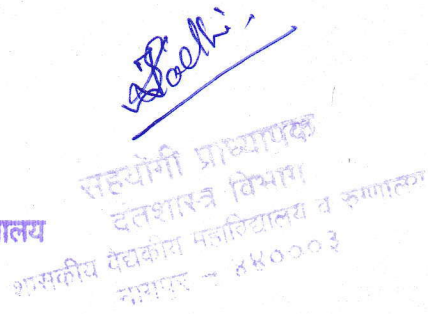 सहयोगी प्राध्यापक
दंतशास्त्र विभाग
ालय
शासकीय वैद्यकीय महाविद्यालय व रुग्णालय
नागपूर - ४४०००३